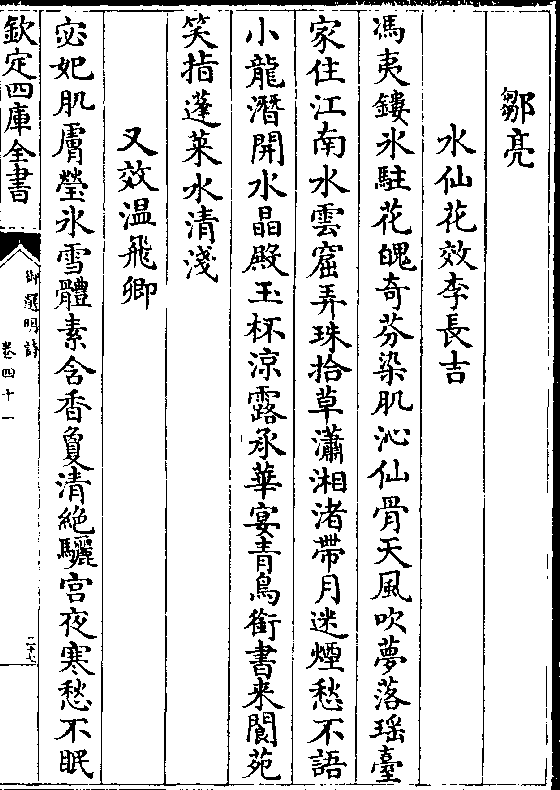 鄒亮
水仙花效李長吉
馮夷鏤氷駐花魄竒芬染肌沁仙骨天風吹夢落瑶臺
家住江南水雲窟弄珠拾草瀟湘渚帶月迷煙愁不語
小龍潛開水晶殿玉杯涼露承華宴青鳥銜書来閬苑
笑指蓬莱水清淺
又效温飛卿
宓妃肌膚瑩氷雪體素含香敻清絶驪宫夜寒愁不眠
欽定四庫全書
御選明詩
卷四十一